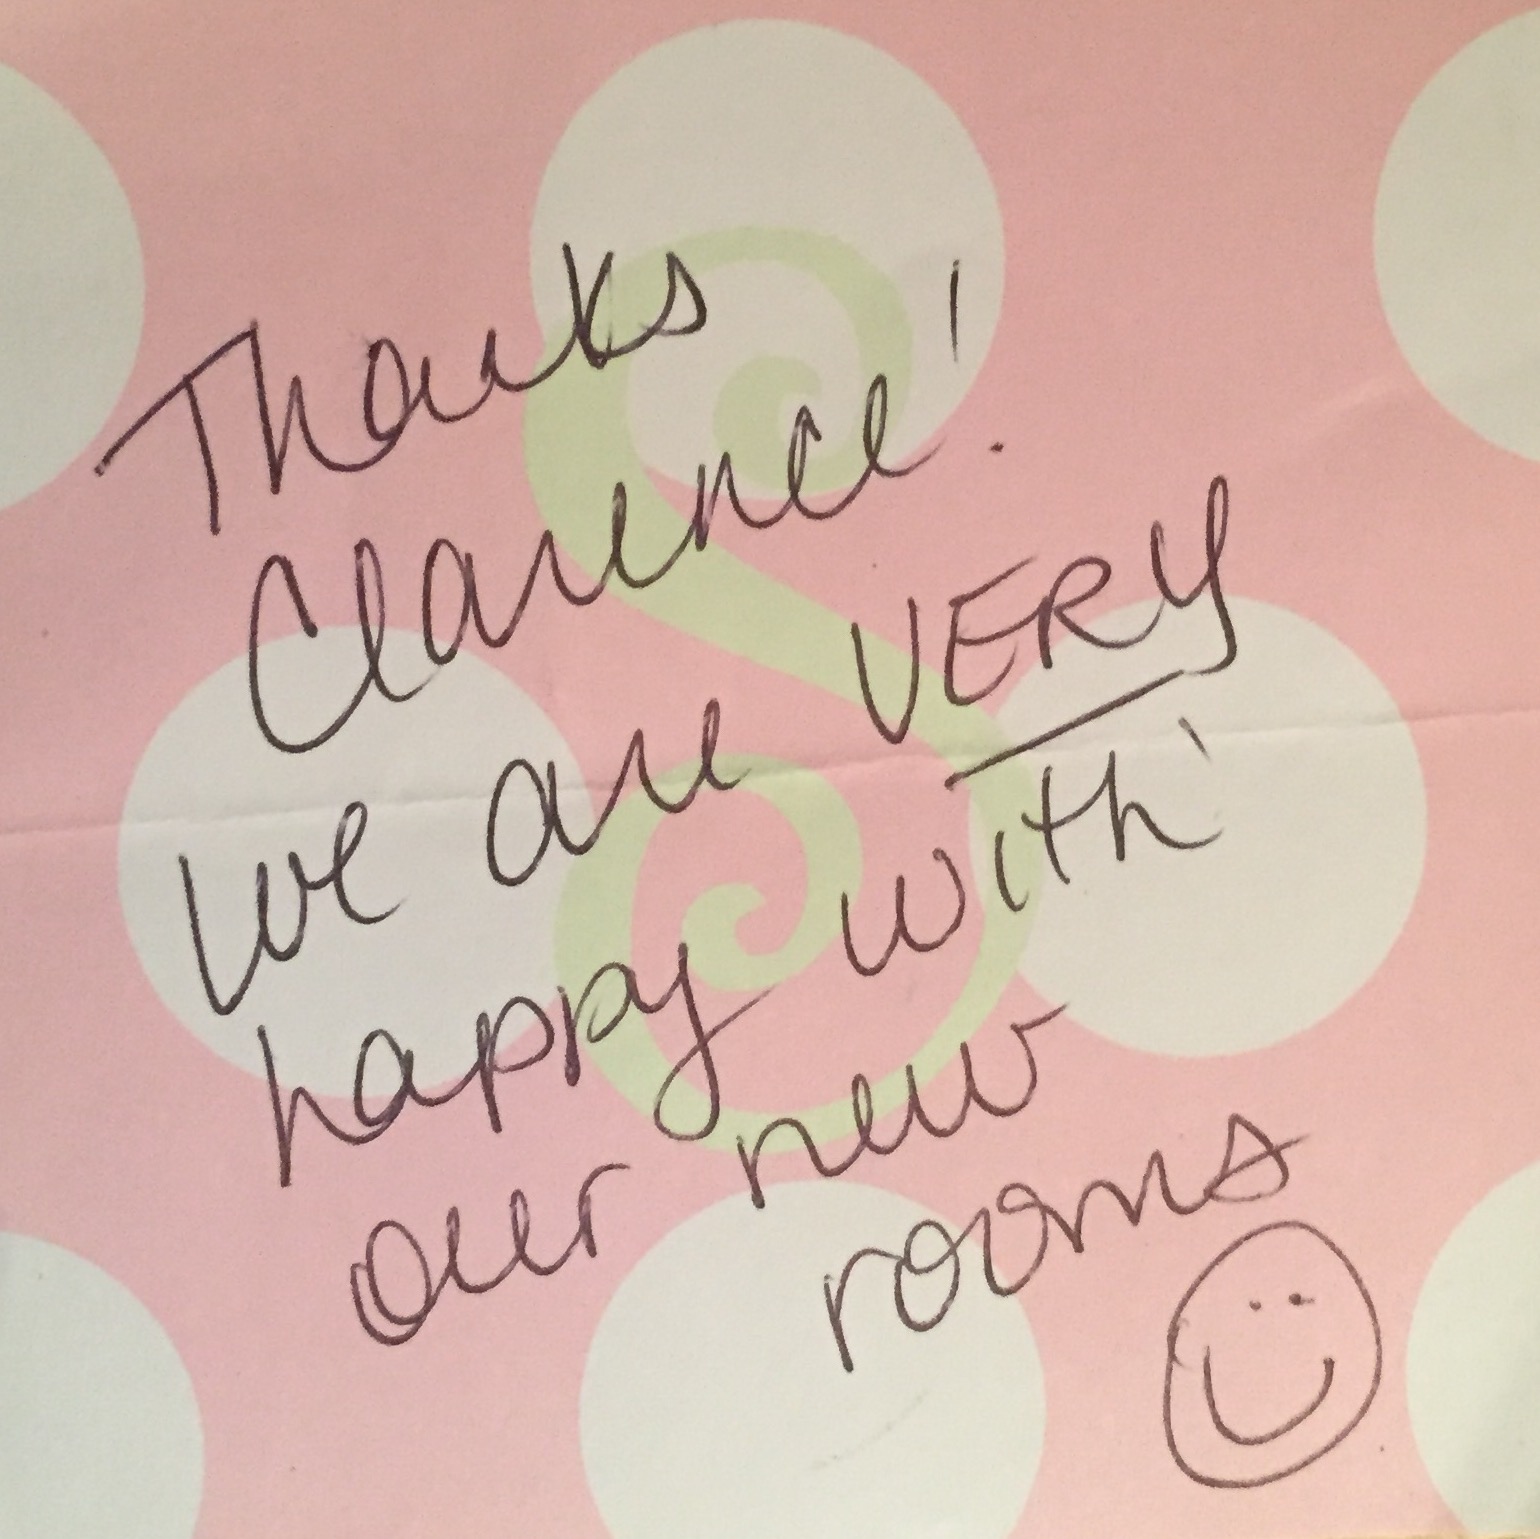 Thanks
Clarence!
We are VERY
happy with
our new
rooms
S